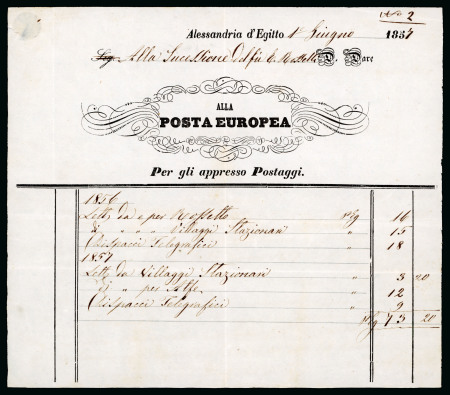 No 2
Alessandria d'Egitto 1º Giugno 1857
Sig. Alla Successione del fù C. Rossetti D. Dare
ALLA
POSTA EUROPEA
Per gli appresso Postaggi.
1856
Lett. da e per Rossetto Pig 16
di " " " Villaggi Stazionari " 15
Dispacci Telegrafici " 18
1857
Lett. da Villaggi Stazionari " 3 20
di " per " 12
Dispacci Telegrafici " 9
Pig 73 20